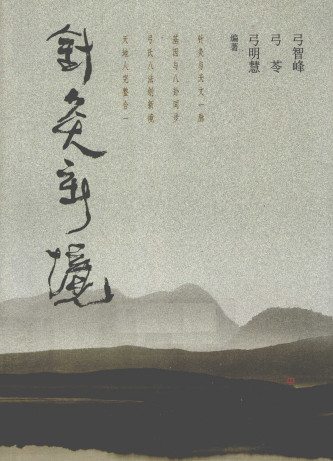 弓智峰
弓 苓
弓明慧
编著
针灸与天文一脉
基因与八卦同步
弓氏八法创新境
天地人完整合一
針灸新境